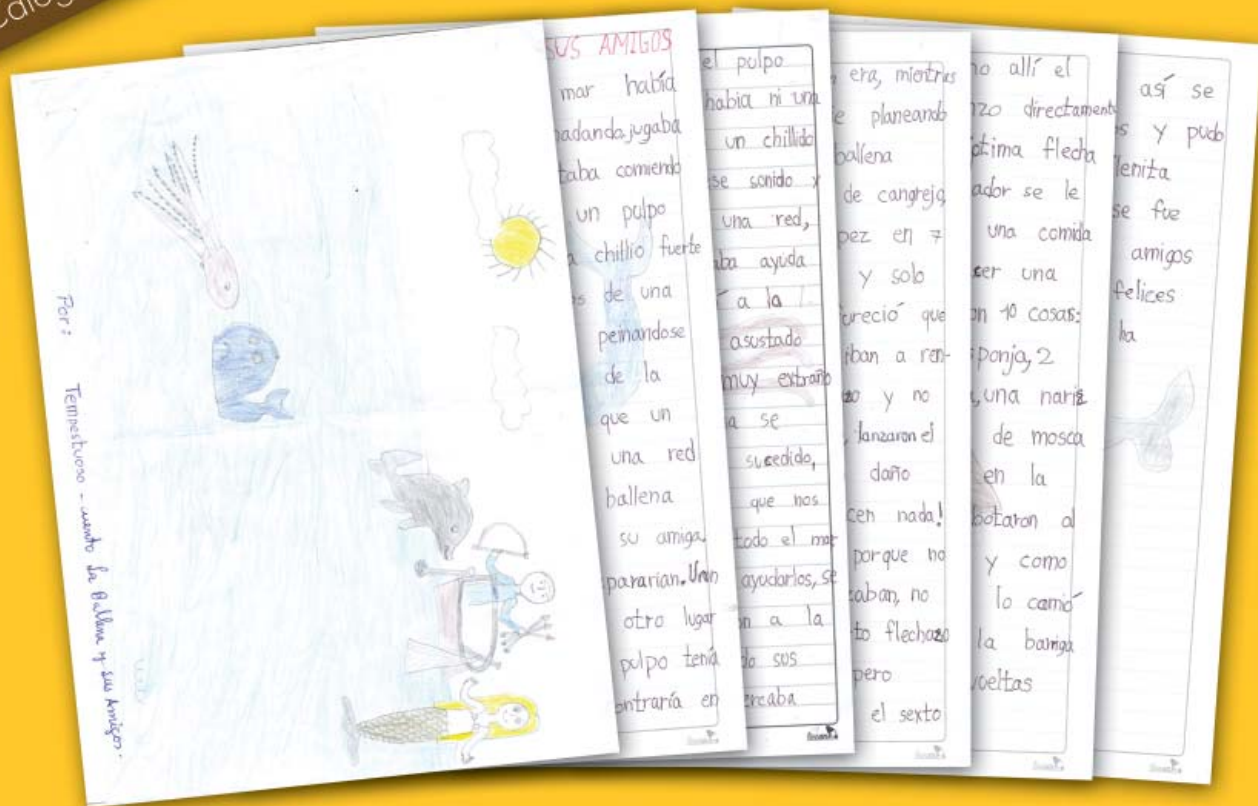 Por: Tempestuoso - cuento La Ballena y sus Amigos.
SUS AMIGOS
mar había
nadando, jugaba
taba comiendo
un pulpo
a chillio fuerte
s de una
peinandose
de la
que un
una red
ballena
su amiga
pararian. Unan
otro lugar
pulpo tenía
ontraría en
el pulpo
habia ni una
un chillido
se sonido y
una red,
aba ayuda
a la
asustado
muy extraño
a se
sucedido,
que nos
todo el mar
ayudarlos, se
n a la
do sus
ercaba
era, mientras
e planeando
ballena
de cangrejo
pez en 7
y solo
oreció que
iban a ren-
zo y no
, lanzaron el
daño
cen nada!
porque no
caban, no
to flechazo
pero
el sexto
no allí el
nzo directamente
ptima flecha
ador se le
una comida
cer una
on 10 cosas:
sponja, 2
, una nariz
de mosca
en la
botaron al
y como
lo comió
la barriga
vueltas
así se
s y pudo
llenita
se fue
amigos
felices
ha